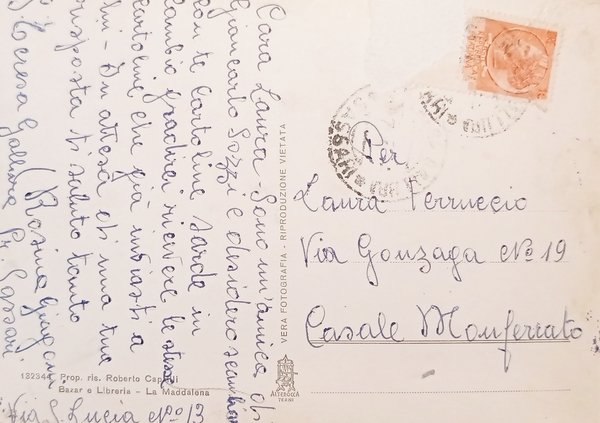 Cara Laura. Sono un'amica di
Giancarlo Sozzi e desidero scambiare
con te cartoline sarde in
cambio gradirei ricevere le stesse
cartoline che già inviasti a
lui - In attesa di una tua
risposta ti saluto tanto
(Rosina Giagoni
S. Teresa Gallura Pr. Sassari
Via S. Lucia N° 13
Per
Laura Ferruccio
Via Gonzaga N° 19
Casale Monferrato
VERA FOTOGRAFIA - RIPRODUZIONE VIETATA
132344 Prop. ris. Roberto
Bazar e Libreria - La Maddalena
ALTEROCCA
TERNI